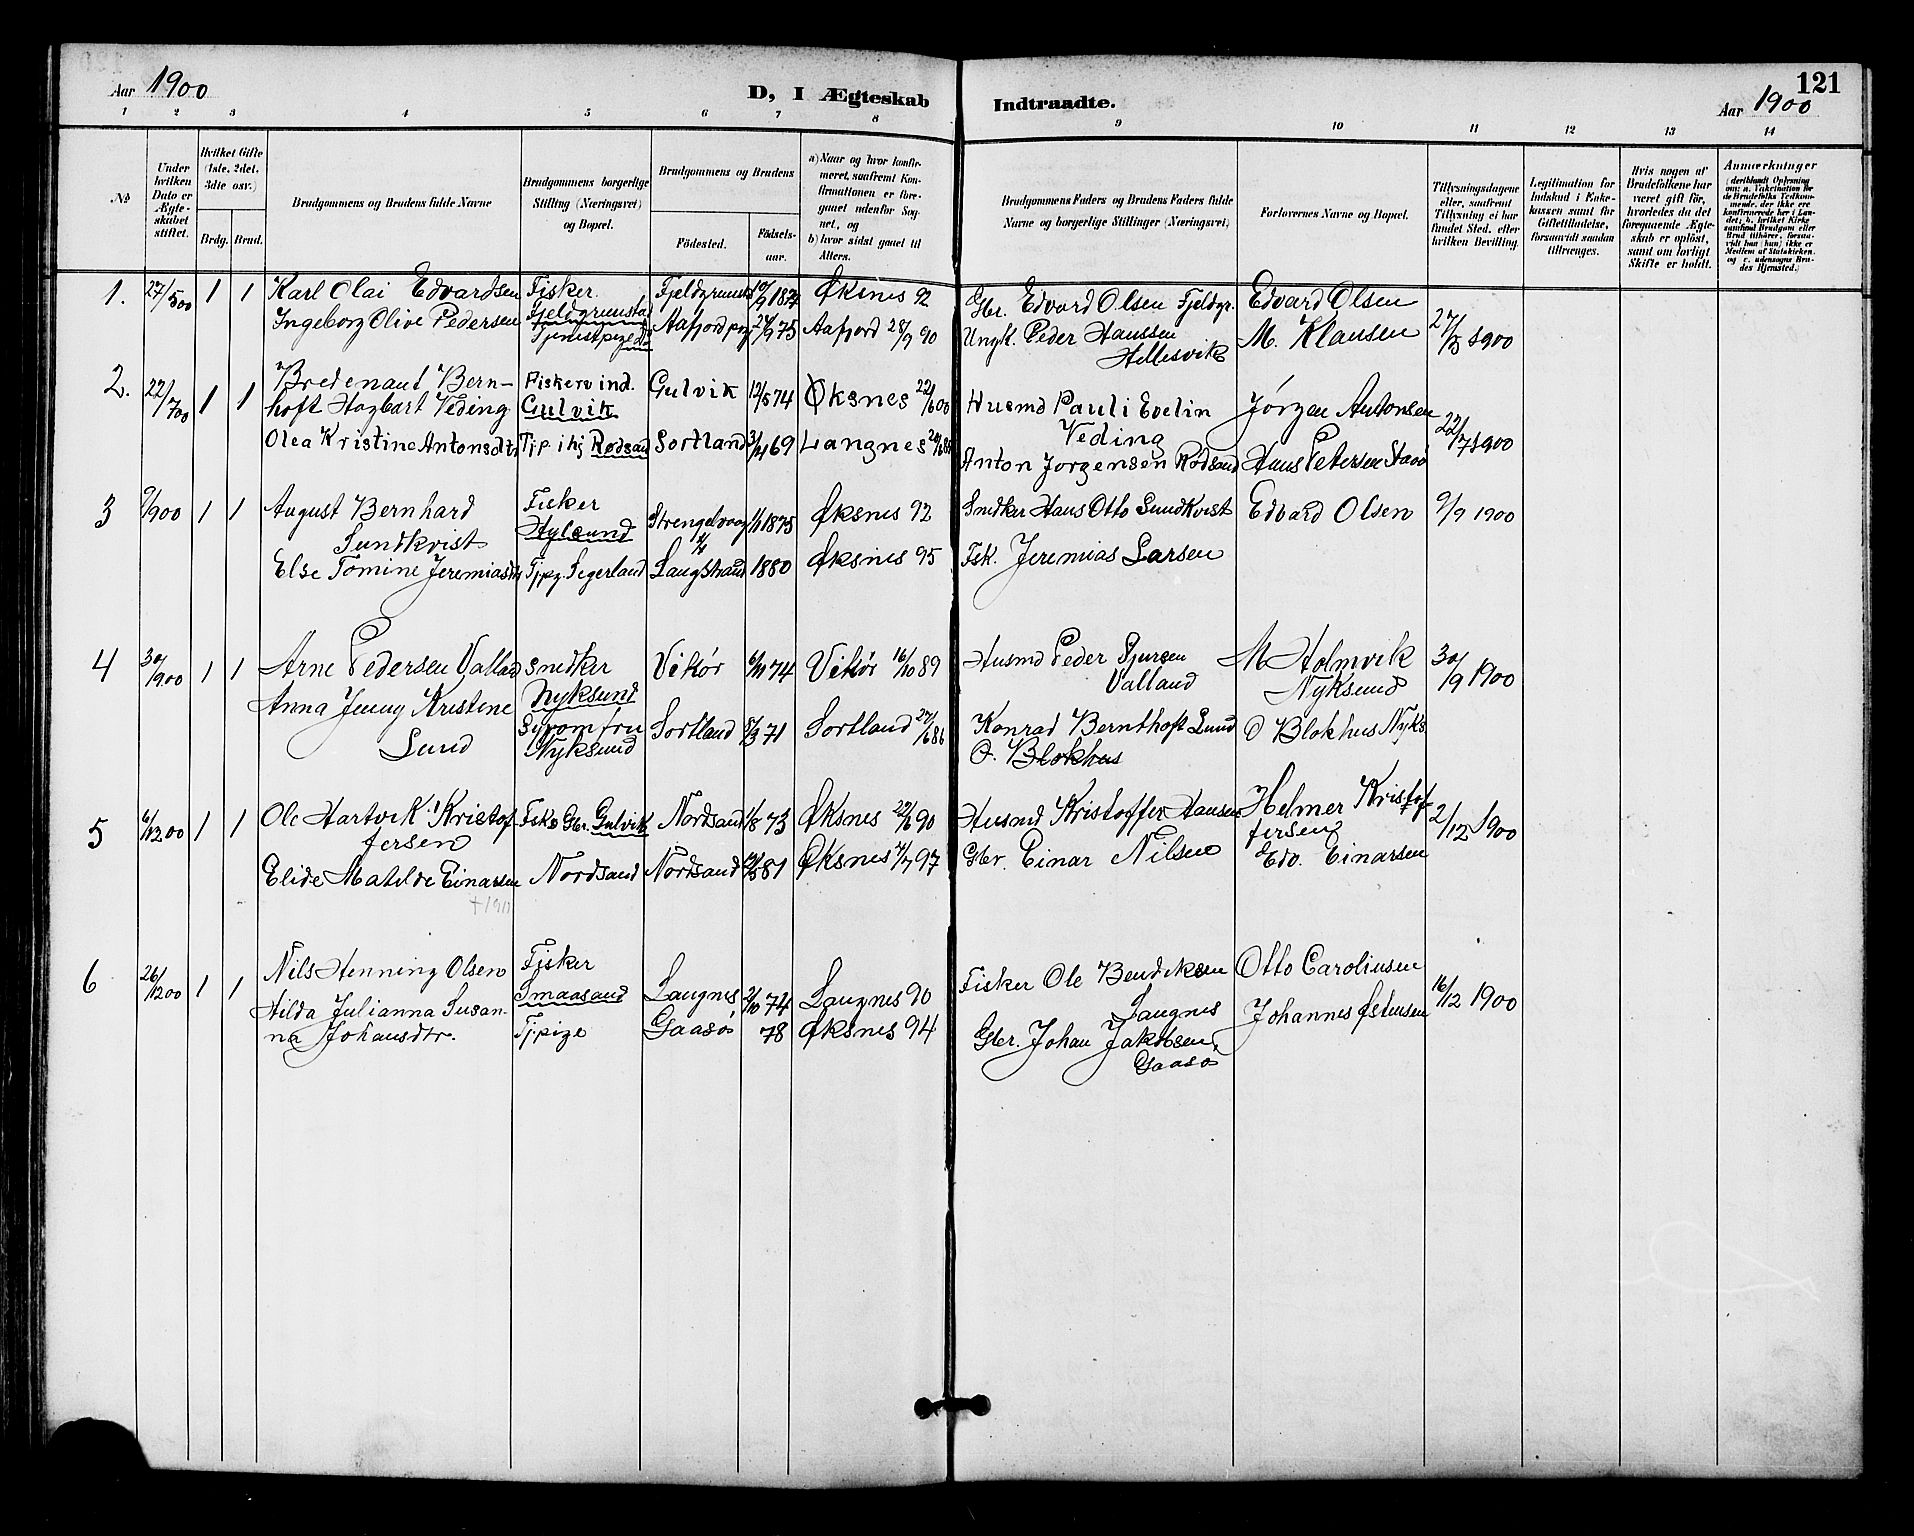 Aar 1900
D, I Ægteskab
Indtraadte.
121
Aar 1900
1 2 3 4 5 6 7 8 9 10 11 12 13 14
№
Under hvilken Dato er Ægteskabet stiftet.
Hvilket Gifte (1ste, 2det, 3dte osv.)
Brdg. Brud.
Brudgommens og Brudens fulde Navne
Brudgommens borgerlige Stilling (Næringsvei) og Bopæl.
Brudgommens og Brudens
Fødested.
Fødselsaar.
a) Naar og hvor konfirmeret, saafremt Konfirmationen er foregaaet udenfor Sognet, og
b) hvor sidst gaaet til Alters.
Brudgommens Faders og Brudens Faders fulde Navne og borgerlige Stillinger (Næringsvei)
Forlovernes Navne og Bopæl.
Tillysningsdagene eller, saafremt Tillysning ei har fundet Sted, efter hvilken Bevilling.
Legitimation for Indskud i Enkekassen samt for Giftetilladelse, forsaavidt saadan tiltrænges.
Hvis nogen af Brudefolkene har været gift før, hvorledes da det foregaaende Ægteskab er opløst, samt om lovligt Skifte er holdt.
Anmærkninger
1. 27/5 00 1 1 Karl Olai Edvardsen Fisker Øksnes 92 Gbr. Edvard Olsen Fjeldgr. Edvard Olsen 27/5 1900
Ingeborg Olive Pedersen Aafjord 28/9 90 Ungk. Peder Hanssen M. Klausen
Hellesvik
2. 22/7 00 1 1 Bredenaut Bern-
hoft Hagbart Veding Fisker o ind. Gulvik Gulvik 12/5 74 Øksnes 22/6 00 Husmd Pauli Evelin Jørgen Antonsen 22/7 1900
Veding
Olea Kristine Antonsdtr Tjp. i hj Rødsand Sortland 69 Langnes Anton Jørgensen Rødsand Hans Petersen
3 9/9 00 1 1 August Bernhard Fisker Strengelvaag 1875 Øksnes 92 Snedker Hans Otto Sundkvist Edvard Olsen 9/9 1900
Sundkvist
Else Tomine Jeremiasdtr Langstrand 1880 Øksnes 95 Fsk. Jeremias Larsen
4 30/9 00 1 1 Arne Pedersen Valland Snedker Nyksund Vikør 74 Vikør 16/10 89 Husmd Peder Sjursen M Holmvik 30/9 1900
Valland Nyksund
Anna Jenny Kristene
Lund Nyksund Sortland 8/3 71 Sortland 27/6 86 Konrad Bernthoft Lund O Blokhus Nyks.
O. Blokhus
5 6/12 00 1 1 Ole Hartvik Kristof-
fersen Fisk o Gbr. Gulvik Nordsand 1/8 73 Øksnes 22/6 90 Husmd Kristoffer Hansen Helmer Kristof-
fersen 2/12 1900
Elide Matilde Einarsen Nordsand Nordsand 81 Øksnes 97 Gbr. Einar Nilsen Edv. Einarsen
6 26/12 00 1 1 Nils Henning Olsen Fisker Smaasand Langnes 74 Langnes 90 Fisker Ole Bendiksen Otto Carolinsen 16/12 1900
Langnes
Hilda Julianna Susan-
na Johansdtr. Tjpige Gaasø 78 Øksnes 94 Gbr. Johan Jakobsen, Johannes Østensen
Gaasø